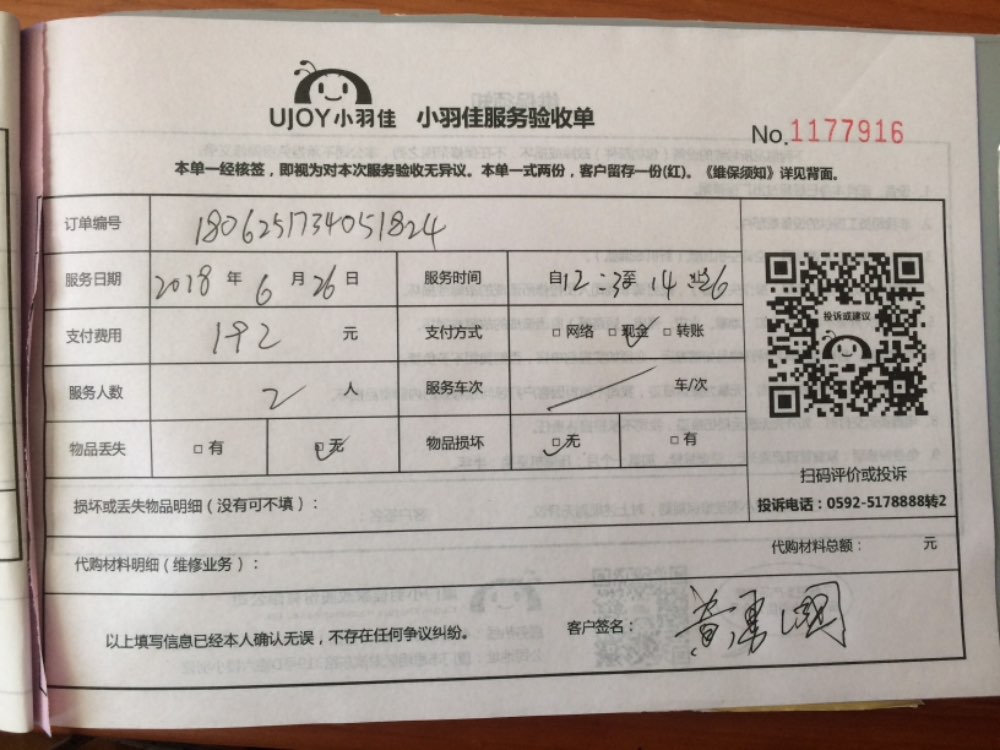 UJOY小羽佳 小羽佳服务验收单
No.1177916
本单一经核签，即视为对本次服务验收无异议。本单一式两份，客户留存一份(红)。《维保须知》详见背面。
订单编号 1806251734051824
服务日期 2018 年 6 月 26 日 服务时间 自12:3至14
支付费用 192 元 支付方式 □网络 □现金 □转账
服务人数 2 人 服务车次 车/次
物品丢失 □有 □无 物品损坏 □无 □有
投诉或建议
扫码评价或投诉
投诉电话：0592-5178888转2
损坏或丢失物品明细（没有可不填）：
代购材料明细（维修业务）： 代购材料总额： 元
以上填写信息已经本人确认无误，不存在任何争议纠纷。 客户签名：